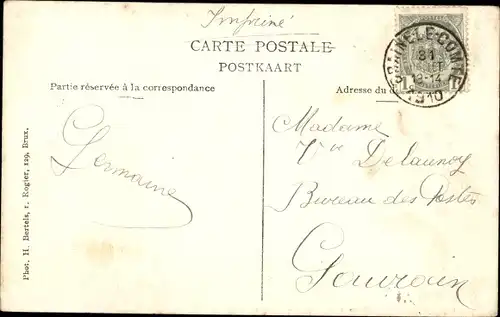 Imprimé
CARTE POSTALE
POSTKAART
Partie réservée à la correspondance
Adresse du
BRAINE-LE-COMTE
31
13-14
1910
Germaine
Madame
Vve Delaunoy
Bureau des Postes
Gaurain
Phot. H. Bertels, r. Rogier, 129, Brux.